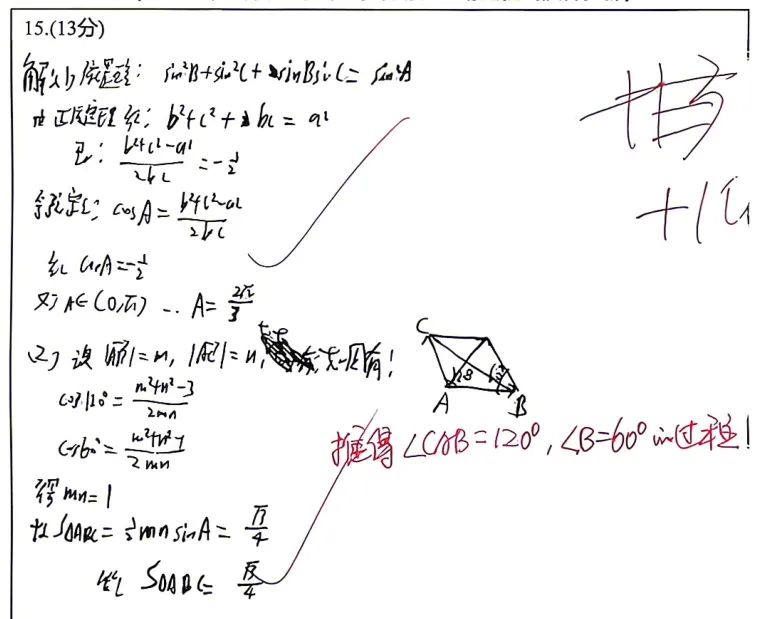 15.(13分)
解(1)依题意: sin²B+sin²C+sinBsinC=sin²A
由正弦定理 得: b²+c²+bc=a²
即: (b²+c²-a²)/2bc = -1/2
余弦定: cosA=(b²+c²-a²)/2bc
得 cosA=-1/2
又 A∈(0,π) ∴ A=2π/3
(2) 设 |AB|=m, |AC|=n,
cos120°=(m²+n²-3)/2mn
cos60°=(m²+n²-1)/2mn
得 mn=1
故 S△ABC=1/2 mn sinA=√3/4
S△ABC=√3/4
C
A
B
120
60
∠CAB=120°,∠B=60°的过程!